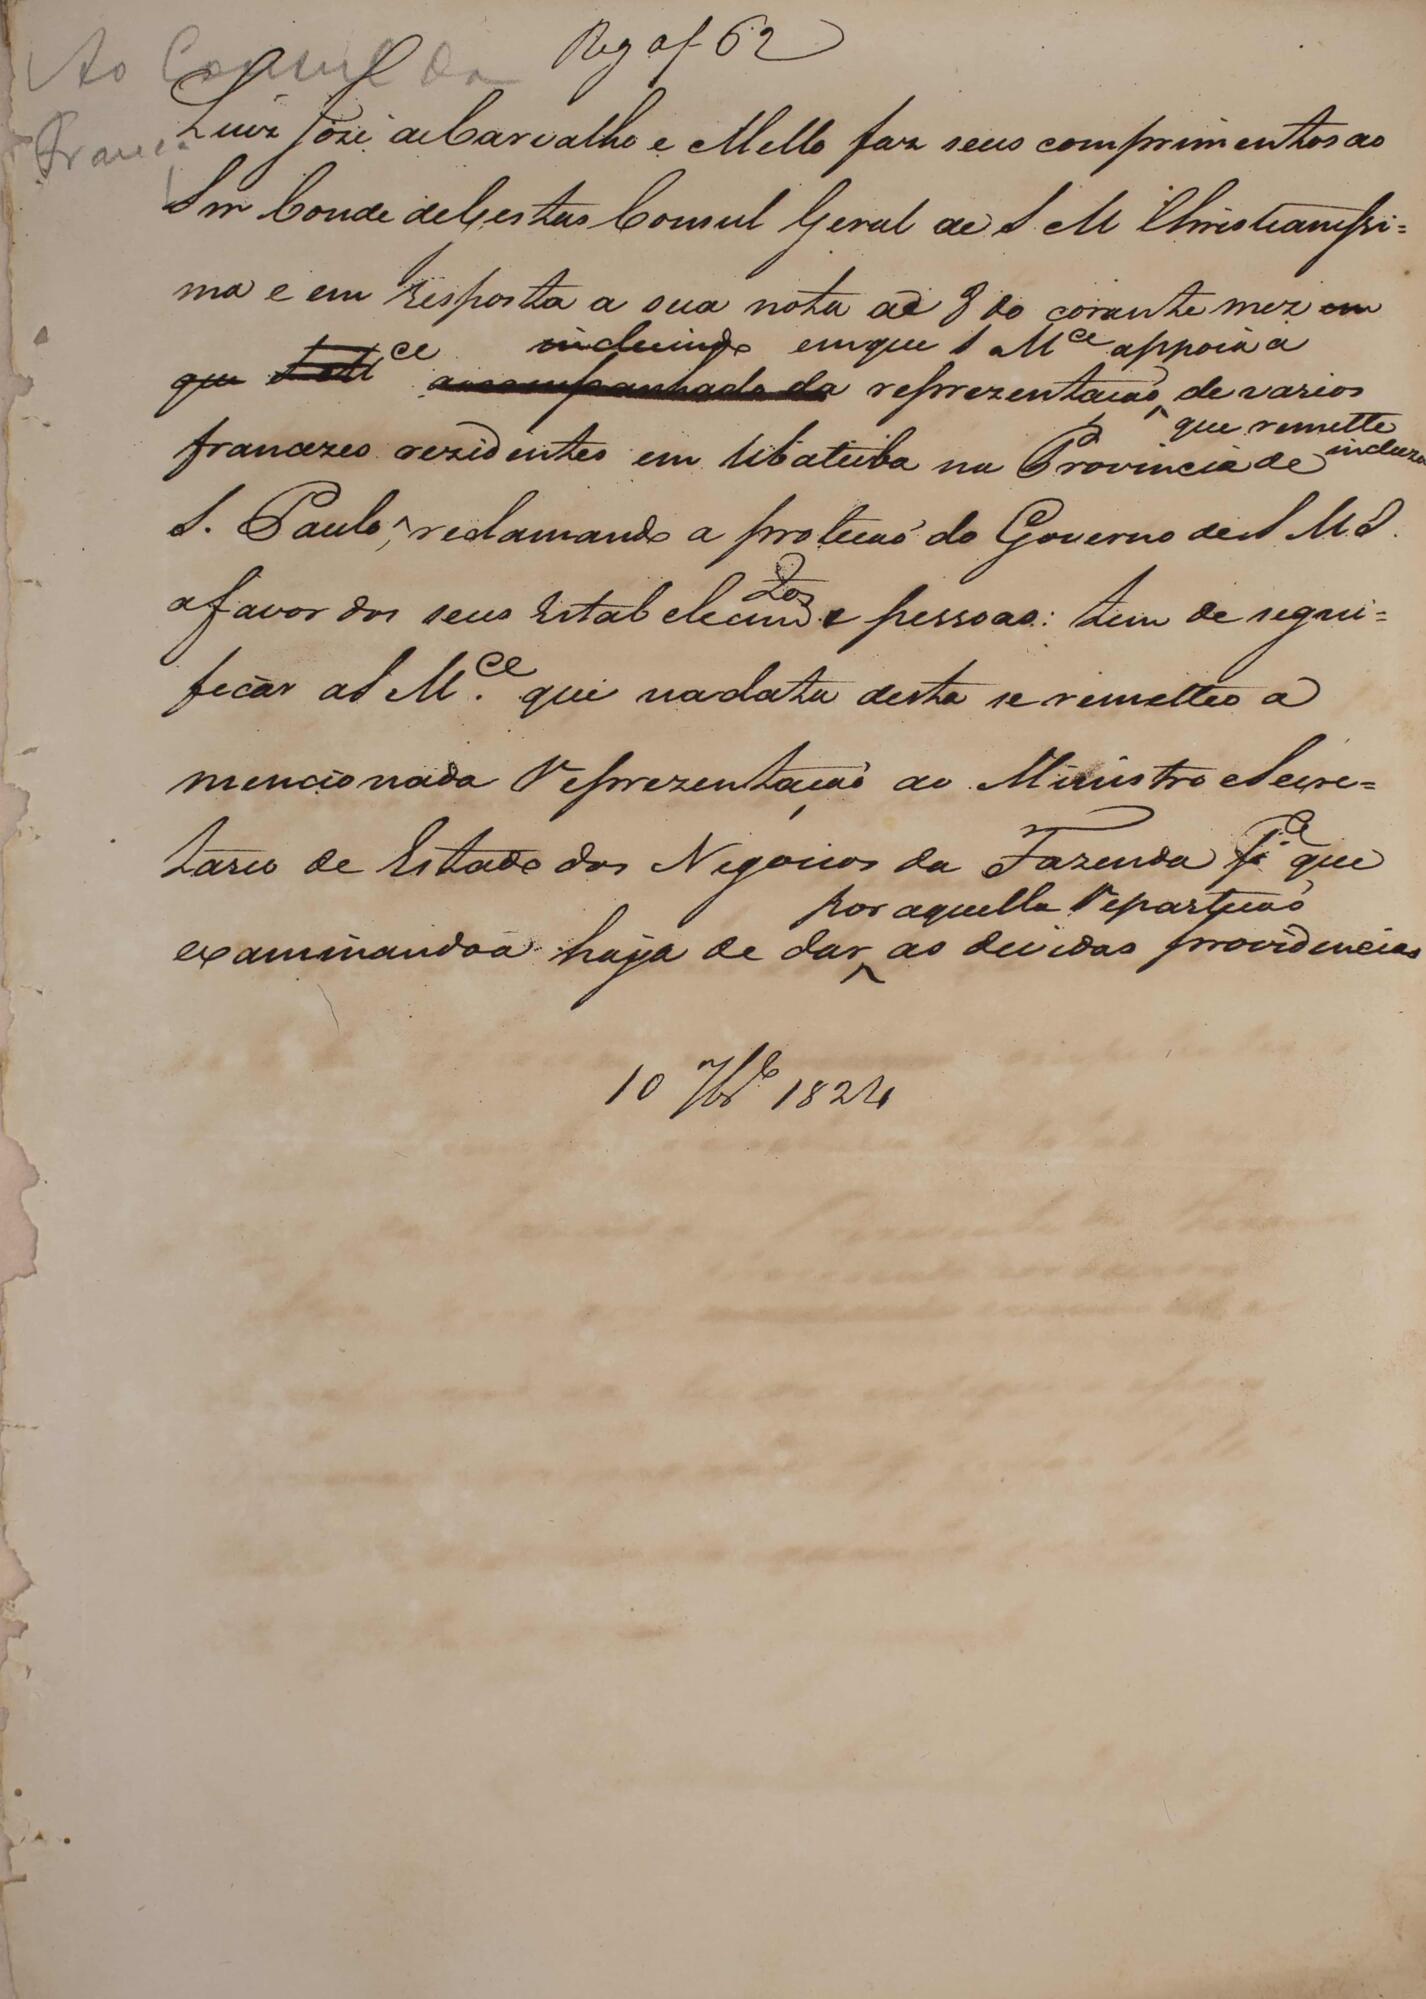 Reg a f 62
Ao Consul da
França
Luiz José de Carvalho e Mello faz seus comprimentos ao
Snr Conde de Gestas Consul Geral de S M Christianissi=
ma e em resposta a sua nota de 8 do corrente mez em
incluindo em que S Mce appoia a
que S Mce acompanhado da reprezentação de varios
que remette
francezes rezidentes em Ubatuba na Provincia de incluza
S. Paulo, reclamando a proteção do Governo de S M I.
a favor dos seus Estabelecimtos e pessoas: tem de segni=
ficar a S M.ce que na data desta se remetteo a
mencionada Reprezentação ao Ministro e Secre=
tario de Estado dos Negocios da Fazenda pa que
por aquella Repartição
examinandoa haja de dar as devidas providencias
10 7bro 1824